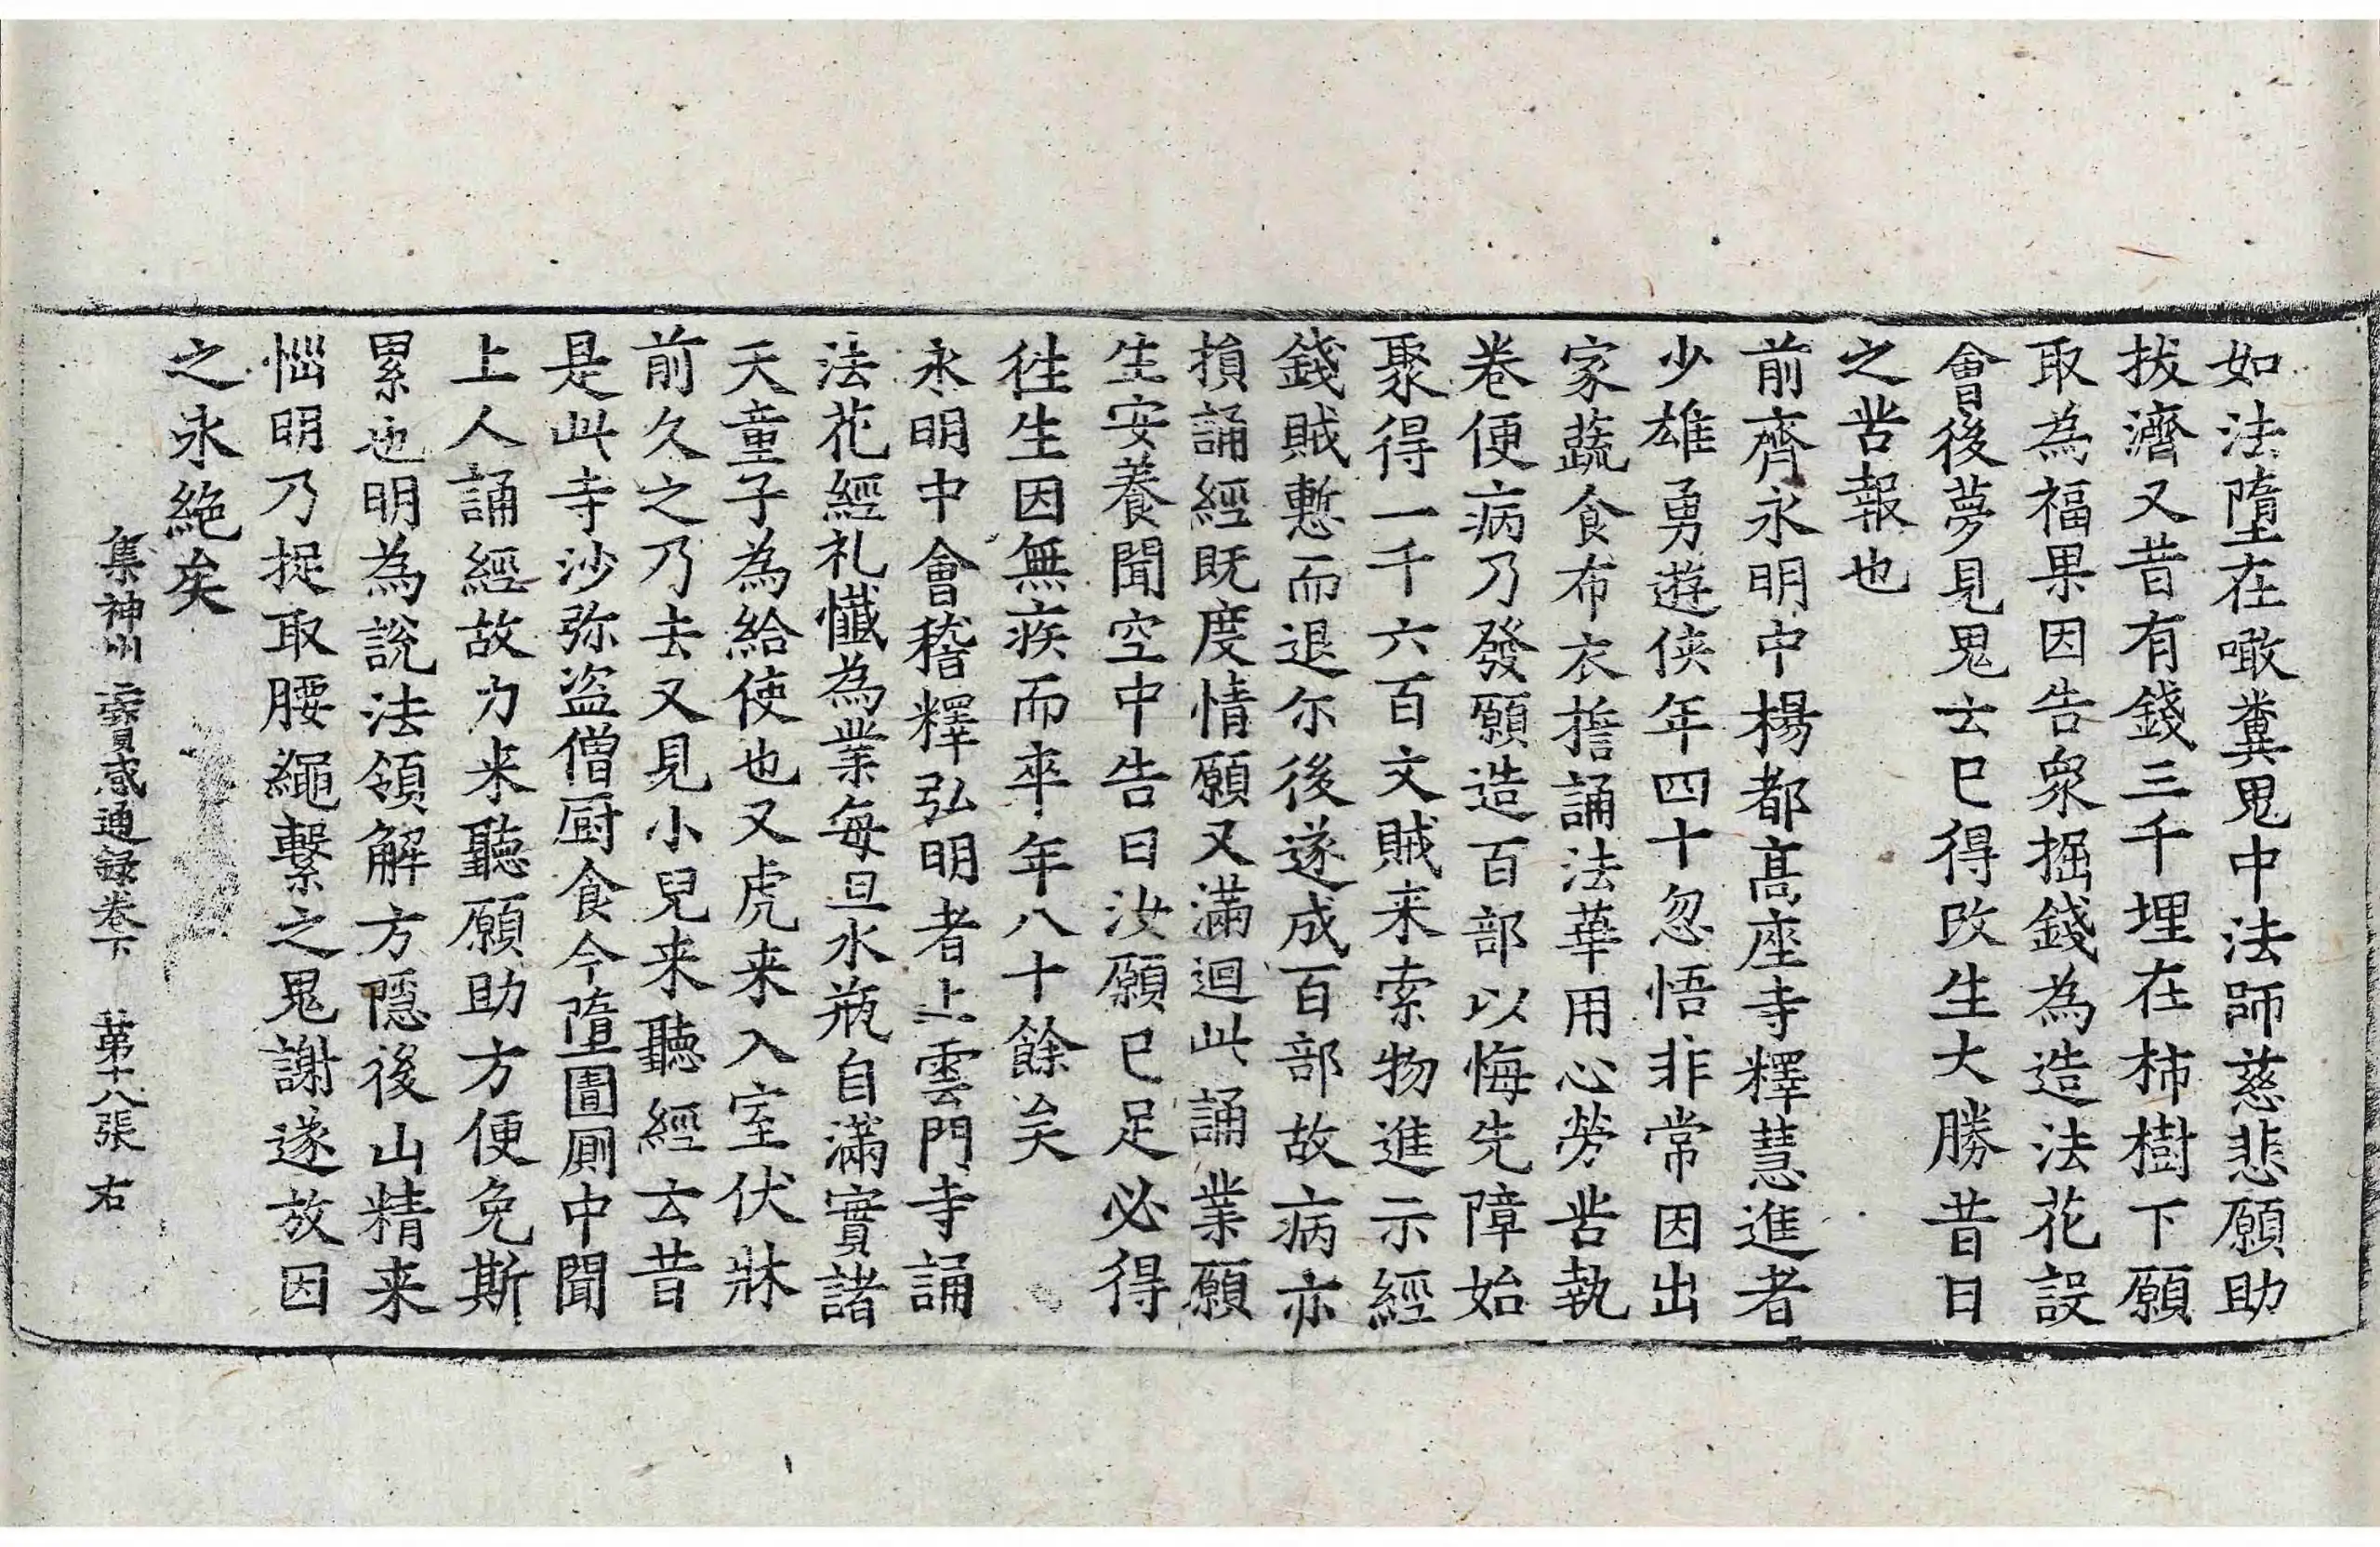 如法墮在噉糞鬼中法師慈悲願助
拔濟又昔有錢三千埋在柿樹下願
取為福果因告衆掘錢為造法花設
會後夢見鬼云已得改生大勝昔日
之苦報也
前齊永明中楊都髙座寺釋慧進者
少雄勇遊俠年四十忽悟非常因出
家蔬食布衣誓誦法華用心勞苦執
卷便病乃發願造百部以悔先障始
聚得一千六百文賊来索物進示經
錢賊慙而退尓後遂成百部故病亦
損誦經既度情願又滿迴此誦業願
生安養聞空中告曰汝願已足必得
往生因無疾而卒年八十餘矣
永明中會稽釋弘明者止雲門寺誦
法花經礼懺為業每旦水瓶自滿實諸
天童子為給使也又虎来入室伏牀
前久之乃去又見小兒来聽經云昔
是此寺沙弥盜僧厨食今墮圊厠中聞
上人誦經故力来聽願助方便免斯
累也明為說法領解方隱後山精来
惱明乃捉取腰繩繫之鬼謝遂放因
之永絕矣
集神州三寶感通録卷下 第十八張 右